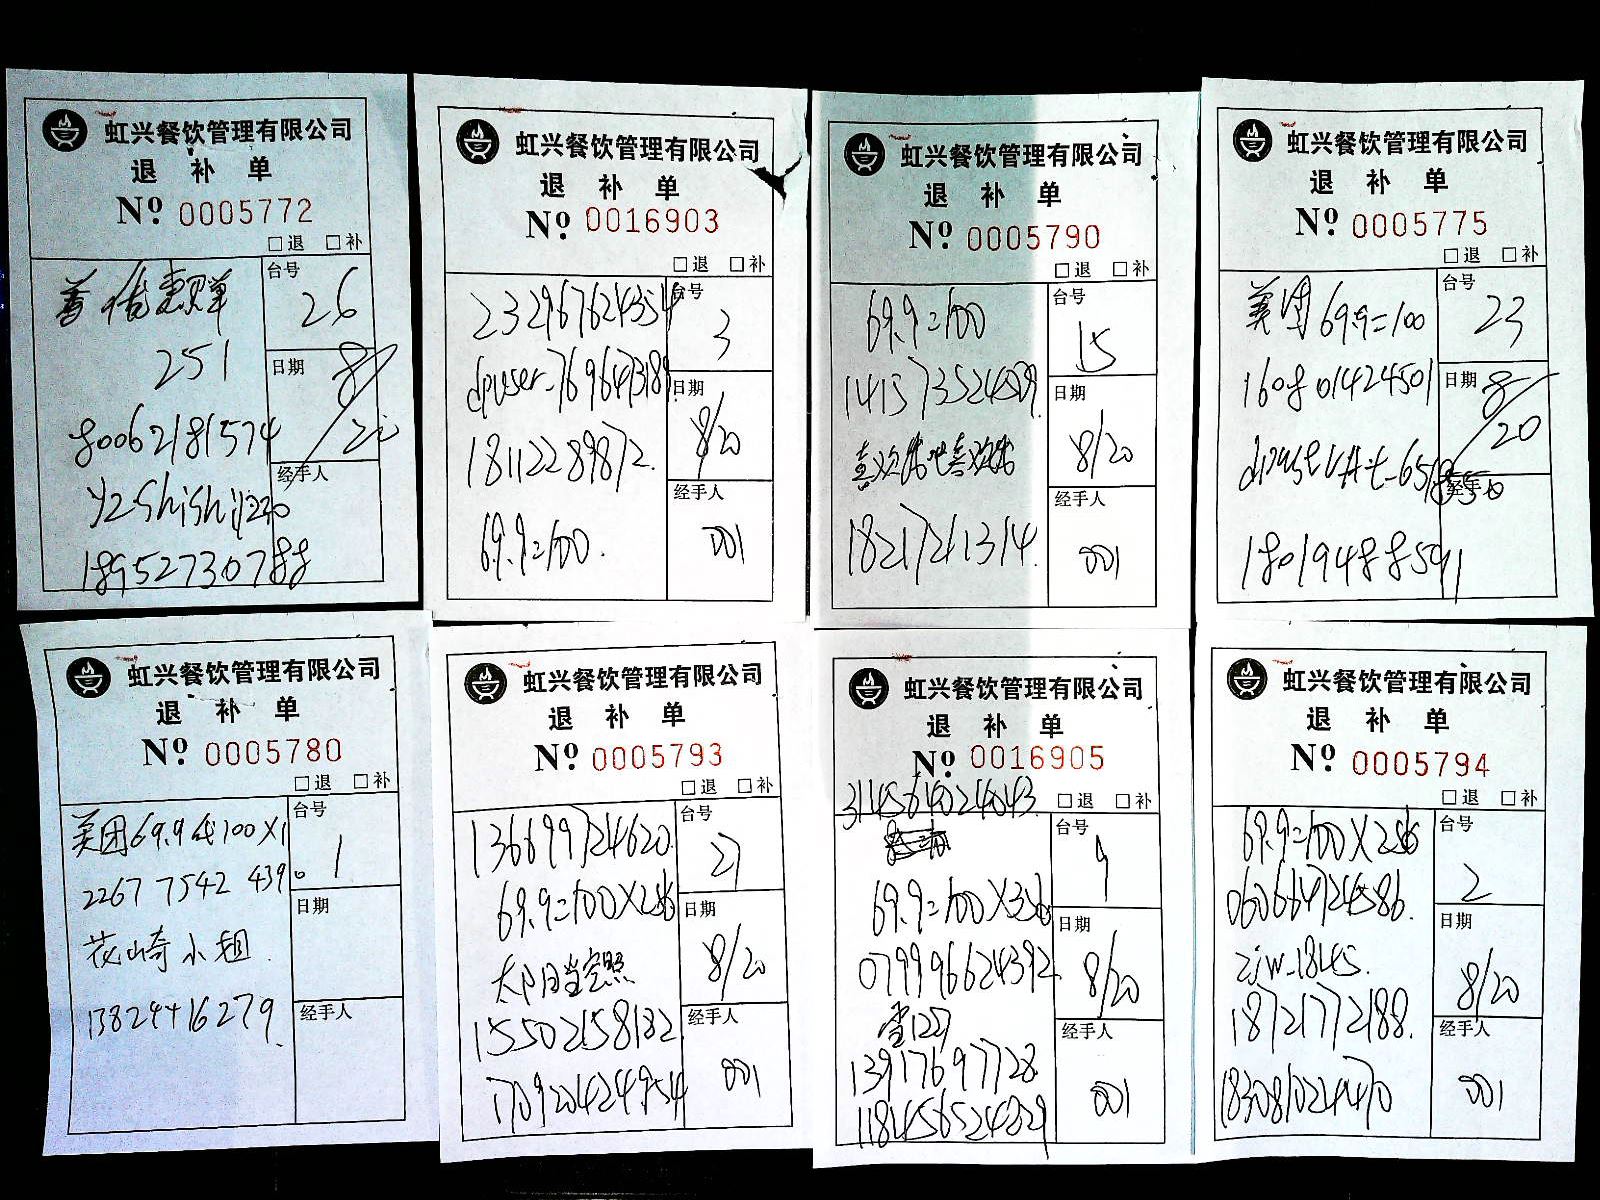 虹兴餐饮管理有限公司
退 补 单
Nº 0005772
□退 □补
优惠买单
251
80062181574
yz-shishiy220
18952730788
台号
26
日期
8/20
经手人
虹兴餐饮管理有限公司
退 补 单
Nº 0016903
□退 □补
232967624354
dpuser-7696473189
18112289872.
69.9=100.
台号
3
日期
8/20
经手人
001
虹兴餐饮管理有限公司
退 补 单
Nº 0005790
□退 □补
69.9=100
18217241314.
台号
15
日期
8/20
经手人
001
虹兴餐饮管理有限公司
退 补 单
Nº 0005775
□退 □补
美团69.9=100
160801424501
18019488591
台号
23
日期
8/20
经手人
虹兴餐饮管理有限公司
退 补 单
Nº 0005780
□退 □补
美团69.9代100X1
2267 7542 439
花崎小姐.
13824416279.
台号
1
日期
经手人
虹兴餐饮管理有限公司
退 补 单
Nº 0005793
□退 □补
136699724620.
69.9=100X2
太阳当空照
15502158132
170920424954
台号
21
日期
8/20
经手人
001
虹兴餐饮管理有限公司
退 补 单
Nº 0016905
□退 □补
311456402404 3.
69.9=100X3
079996624392.
雪127
13917697728
118456524829
台号
9
日期
8/20
经手人
001
虹兴餐饮管理有限公司
退 补 单
Nº 0005794
□退 □补
69.9=100X2
060664724586.
zjw-1845.
18721772188.
183081024470
台号
2
日期
8/20
经手人
001